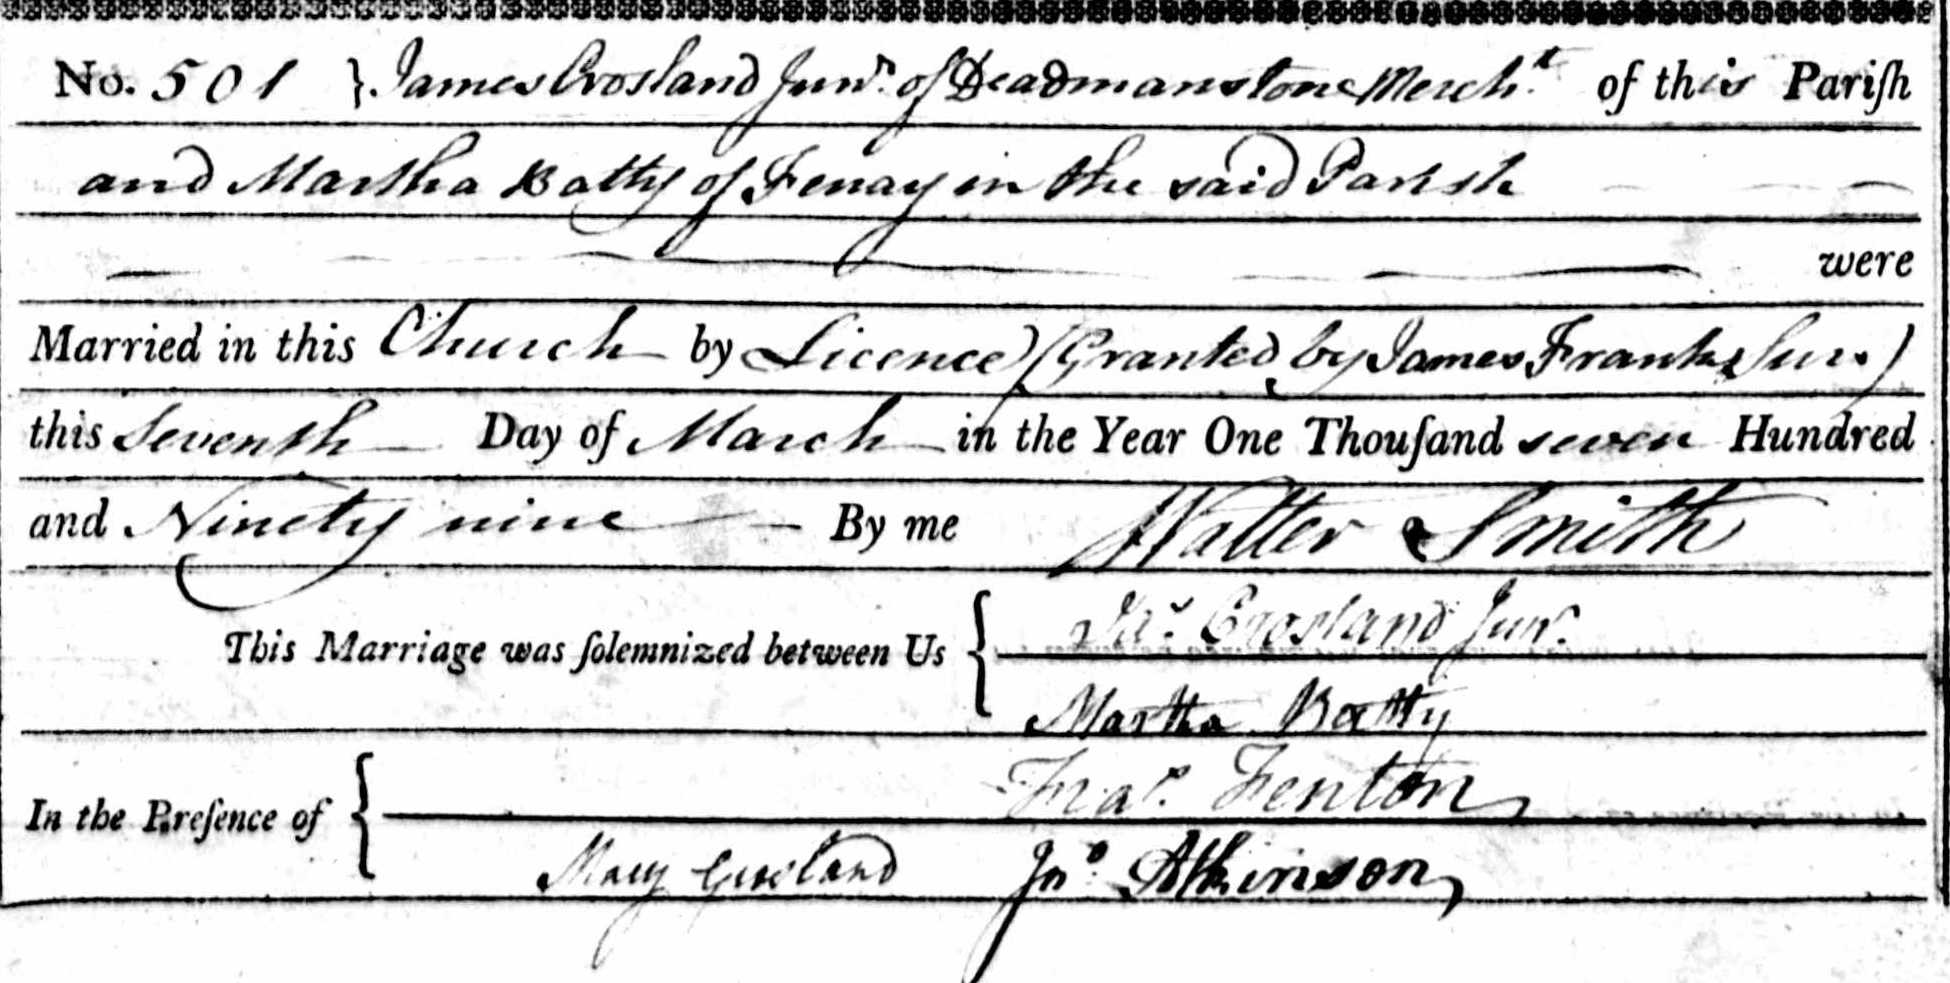 No. 501 } James Crosland Junr. of Deadmanstone Mercht. of this Pariſh
and Martha Batty of Fenay in the said Parish
were
Married in this Church by Licence (Granted by James Franks Sur.)
this Seventh Day of March in the Year One Thouſand seven Hundred
and Ninety nine By me Walter Smith
This Marriage was ſolemnized between Us { Jas. Crosland Junr.
Martha Batty
In the Preſence of { Fras. Fenton
Mary Crosland Jno. Atkinson